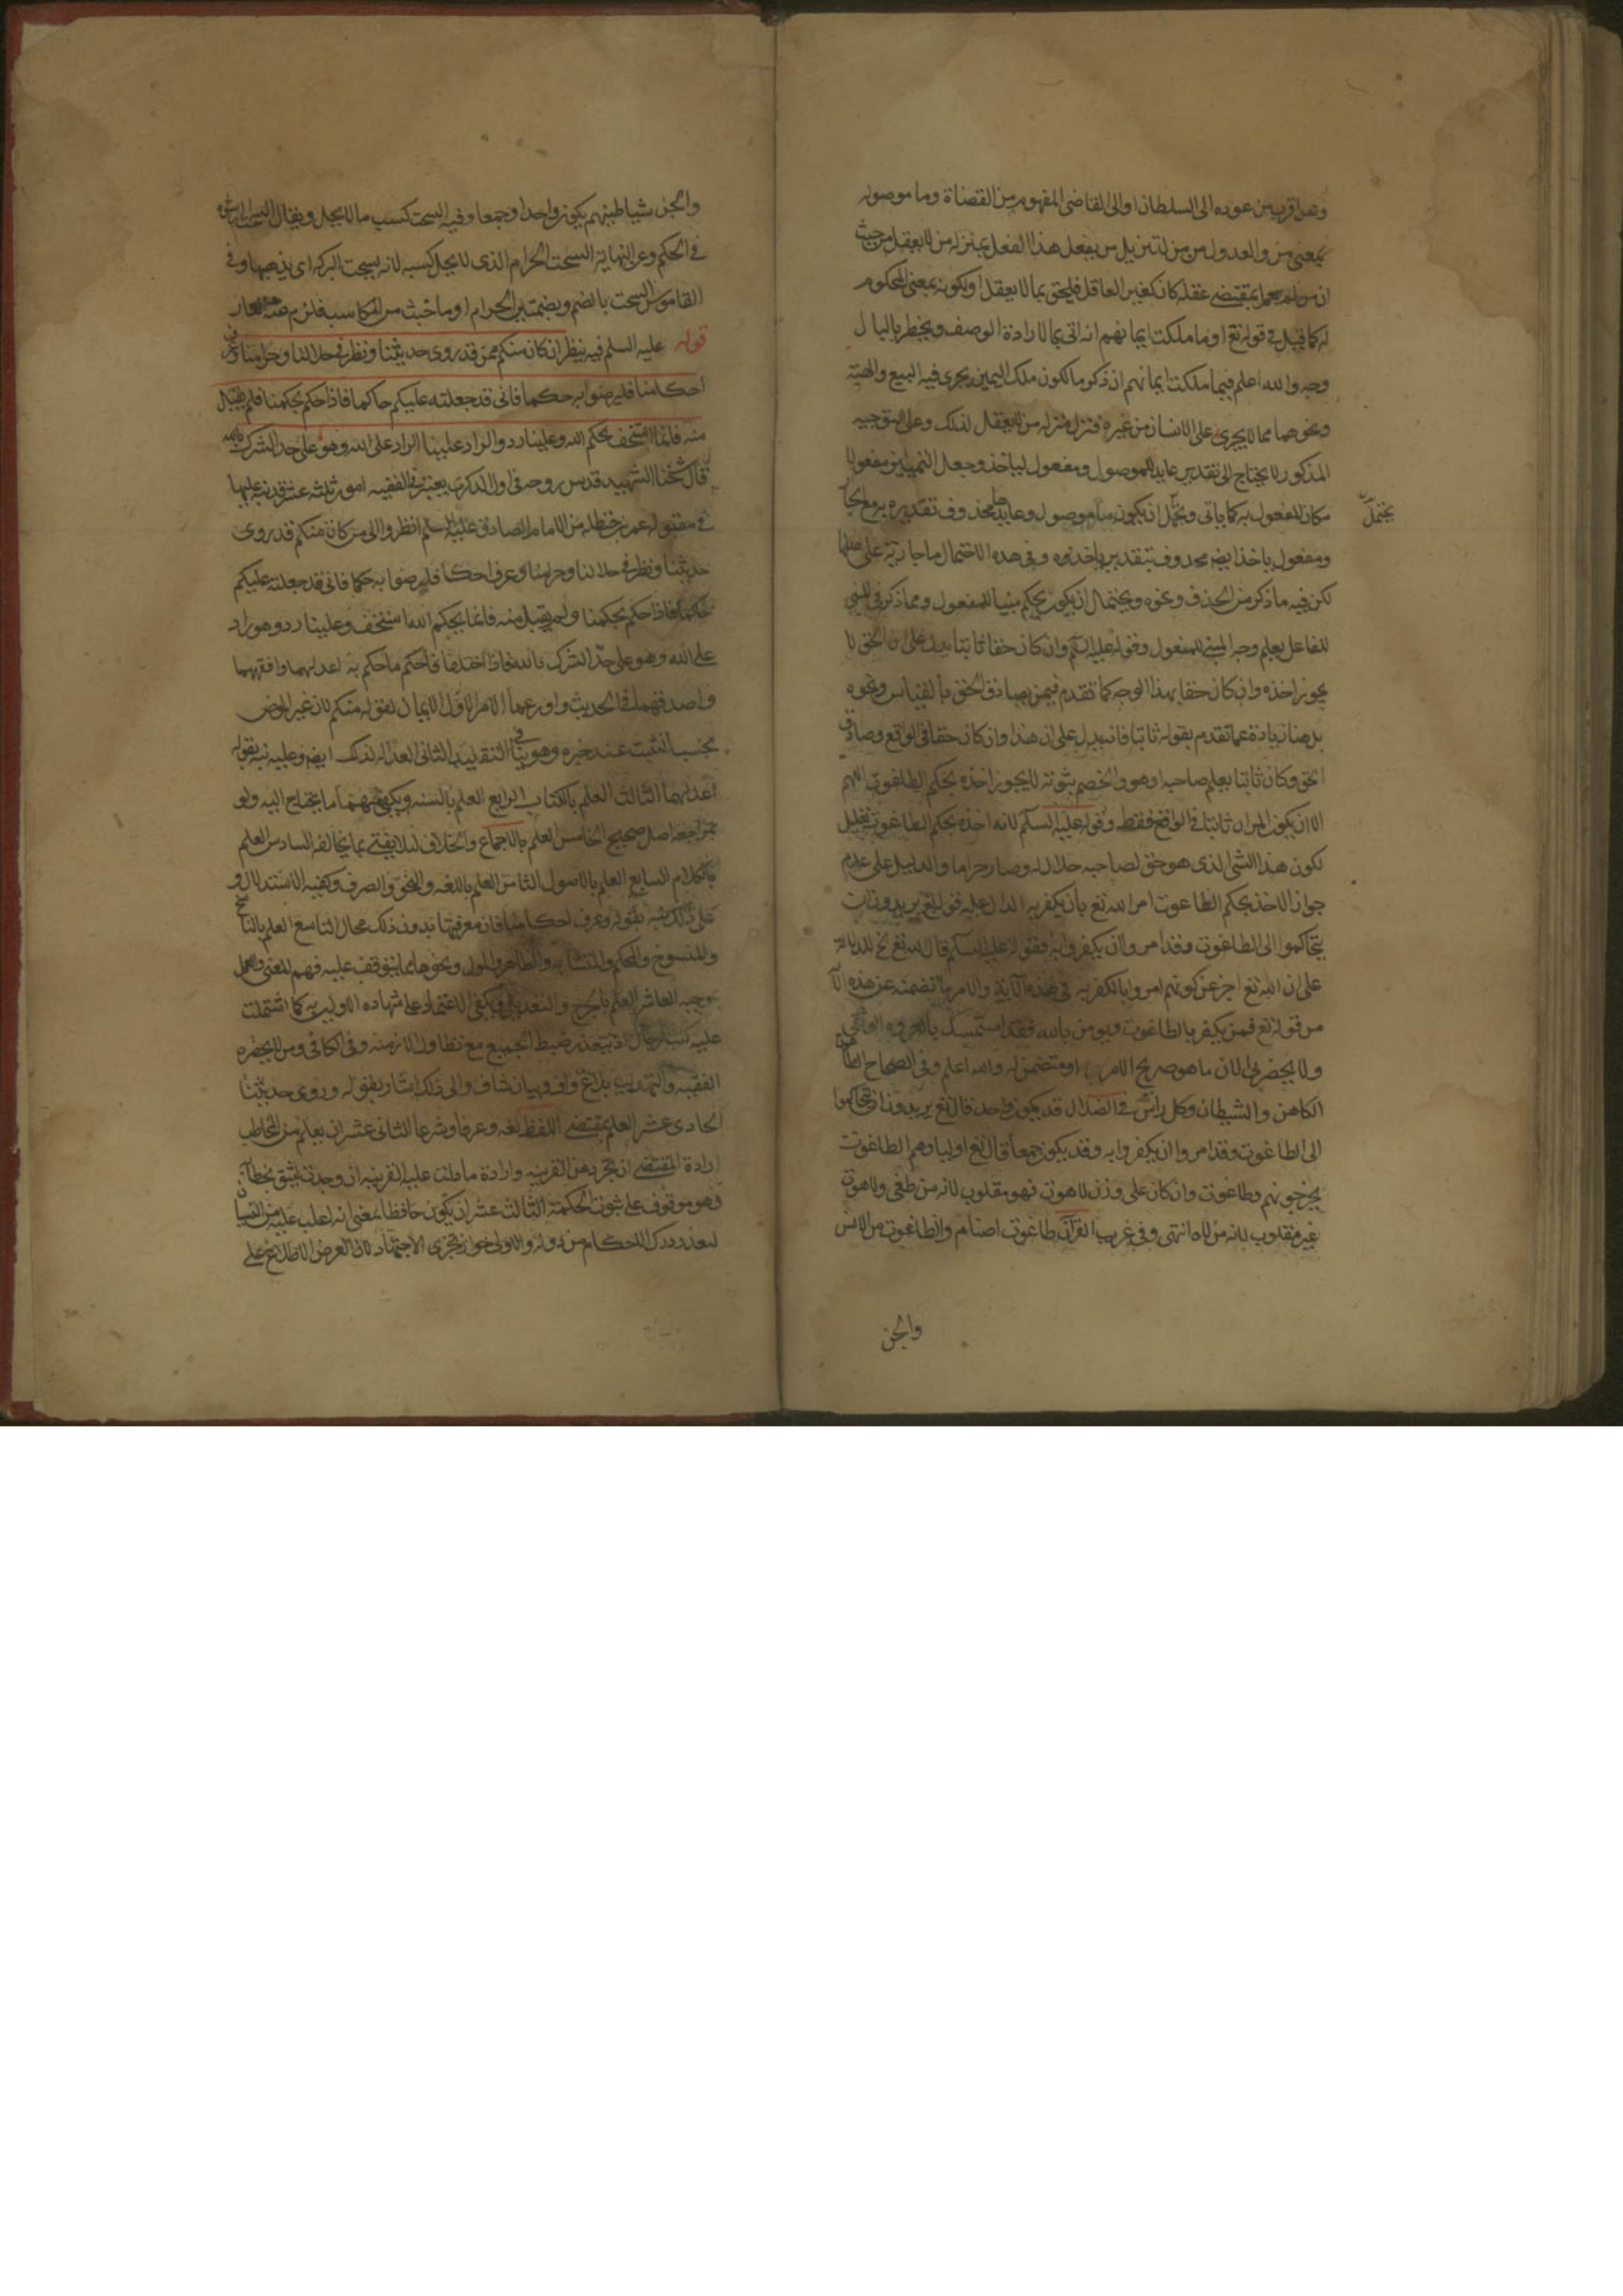 وهذا اقرب من عوده الى السلطان او الى القاضى المفهوم من القضاة وما موصوله
بمعنى من والعدول من من لتنزيل من يفعل هذا الفعل بمنزله من لا يعقل من حيث
ان من لم يعمل بمقتضى عقله كان كغير العاقل فليحق بما لا يعقل او لكونه بمعنى المحكوم
له كما قيل فى قوله تع او ما ملكت ايمانهم انه اتى بما لارادة الوصف ويخطر بالبال
وجه والله اعلم فيما ملكت ايمانهم ان ذكر ما لكون ملك اليمين يجرى فيه البيع والهبة
ونحوهما مما لا يجرى على الانسان من غيره فنزل منزله من لا يعقل لذلك وعلى التوجيه
المذكور لا يحتاج الى تقدير عايد للموصول ومفعول لياخذ وجعل التميز مفعولا
مكان المفعول به كما ياتى ويحتمل ان يكون ما موصول وعايدها محذوف تقديره به
يحتمل
ومفعول ياخذ ايضه محذوف بتقدير ياخذه وفى هذه الاحتمال ما جارية على
لكن فيه ما ذكر من الحذف ونحوه ويحتمل ان يكون يحكم مبنيا للمفعول ومما ذكر فى المبنى
للفاعل يعلم وجه المبنى للمفعول وقوله عليه السلم وان كان حقا ثابتا يدل على ان الحق لا
يجوز اخذه وان كان حقا بهذا الوجه كما تقدم فيمن يصادف الحق بالقياس ونحوه
بل هنا زيادة عما تقدم بقوله ثابتا فانه يدل على ان هذا وان كان حقا فى الواقع وصادف
الحق وكان ثابتا بعلم صاحبه او هو والخصم ثبوته لا يجوز اخذه بحكم الطاغوت اللهم
الا ان يكون المراد ثابتا فى الواقع فقط وقوله عليه السلم لانه اخذه بحكم الطاغوت تعليل
لكون هذا الشى الذى هو حق لصاحبه حلال له وصار حراما والدليل على عدم
جواز الاخذ بحكم الطاغوت امر الله تع بان يكفر به الدال عليه قوله تع يريدون ان
يتحاكموا الى الطاغوت وقد امروا ان يكفروا به فقوله عليه السلم قال الله تع للدلالة
على ان الله تع اخبر عن كونهم امروا بالكفر به فى هذه الاية والامر ما تضمنه غير هذه
من قوله تع فمن يكفر بالطاغوت ويومن بالله فقد استمسك بالعروه الوثقى
ولا يحضرنى الان ما هو صريح الامر او متضمن له والله اعلم وفى الصحاح الطاغوت
الكاهن والشيطان وكل راس فى الضلال قد يكون واحد قال تع يريدون ان يتحاكموا
الى الطاغوت وقد امروا ان يكفروا به وقد يكون جمعا قال تع اولياوهم الطاغوت
يخرجونهم وطاغوت وان كان على وزن لاهوت فهو مقلوب لانه من طغى ولاهوت
غير مقلوب لانه من لاه انتهى وفى غريب القرآن طاغوت اصنام والطاغوت من الانس
والجن
والجن شياطينهم يكون واحدا وجمعا وفيه السحت كسب ما لا يحل ويقال السحت الرشوه
فى الحكم وعن النهاية السحت الحرام الذى لا يحل كسبه لانه يسحت البركه اى يذهبها وفى
القاموس السحت بالضم وبضمتين الحرام او ما خبث من المكاسب فلزم عنه العار
قوله عليه السلم فيه ينظران من كان منكم ممن قد روى حديثنا ونظر فى حلالنا وحرامنا وعرف
احكامنا فليرضوا به حكما فانى قد جعلته عليكم حاكما فاذا حكم بحكمنا فلم يقبل
منه فانما استخف بحكم الله وعلينا رد والراد علينا الراد على الله وهو على حد الشرك بالله
قال شيخنا الشهيد قدس روحه فى اول الذكرى يعتبر فى الفقيه امور ثلثه عشر قد نبه عليها
فى مقبوله عمر بن حنظله عن الامام الصادق عليه السلم انظروا الى من كان منكم قد روى
حديثنا ونظر فى حلالنا وحرامنا وعرف احكامنا فليرضوا به حكما فانى قد جعلته عليكم
حاكما فاذا حكم بحكمنا ولم يقبل منه فانما بحكم الله استخف وعلينا رد وهو راد
على الله وهو على حد الشرك بالله فاذا اختلفا فالحكم ما حكم به اعدلهما وافقههما
واصدقهما فى الحديث واورعهما الامر الاول الايمان لقوله منكم لان غير المومن
يجب التثبت عند خبره وهو ينافى التقليد الثانى العداله لذلك ايضه وعليه نبه بقوله
اعدلهما الثالث العلم بالكتاب الرابع العلم بالسنه ويكفى منهما ما يحتاج اليه ولو
بمراجعه اصل صحيح الخامس العلم بالاجماع والخلاف لئلا يفتى بما يخالفه السادس العلم
بالكلام السابع العلم بالاصول الثامن العلم باللغه والنحو والصرف وكيفيه الاستدلال و
على ذلك نبه بقوله وعرف احكامنا فان معرفتها بدون ذلك محال التاسع العلم بالناسخ
والمنسوخ والمحكم والمتشابه والظاهر والماول ونحوها مما يتوقف عليه فهم المعنى والعمل
بموجبه العاشر العلم بالجرح والتعديل ويكفى الاعتماد على شهاده الاولين به كما اشتملت
عليه كتب الرجال اذ يتعذر ضبط الجميع مع تطاول الازمنه وفى الكافى ومن لا يحضره
الفقيه والتهذيب بلاغ واف وبيان شاف والى ذلك اشار بقوله وروى حديثنا
الحادى عشر العلم بمقتضى اللفظ لغه وعرفا وشرعا الثانى عشر ان يعلم من المخاطب
ارادة المقتضى ان تجرد عن القرينه وارادة ما دلت عليه القرينه ان وجدت ليثق بخطابه
وهو موقوف على ثبوت الحكمة الثالث عشر ان يكون حافظا بمعنى انه اغلب عليه من النسيان
لتعذر درك الاحكام من دونه والاولى جواز تجزى الاجتهاد لان الغرض الاطلاع على